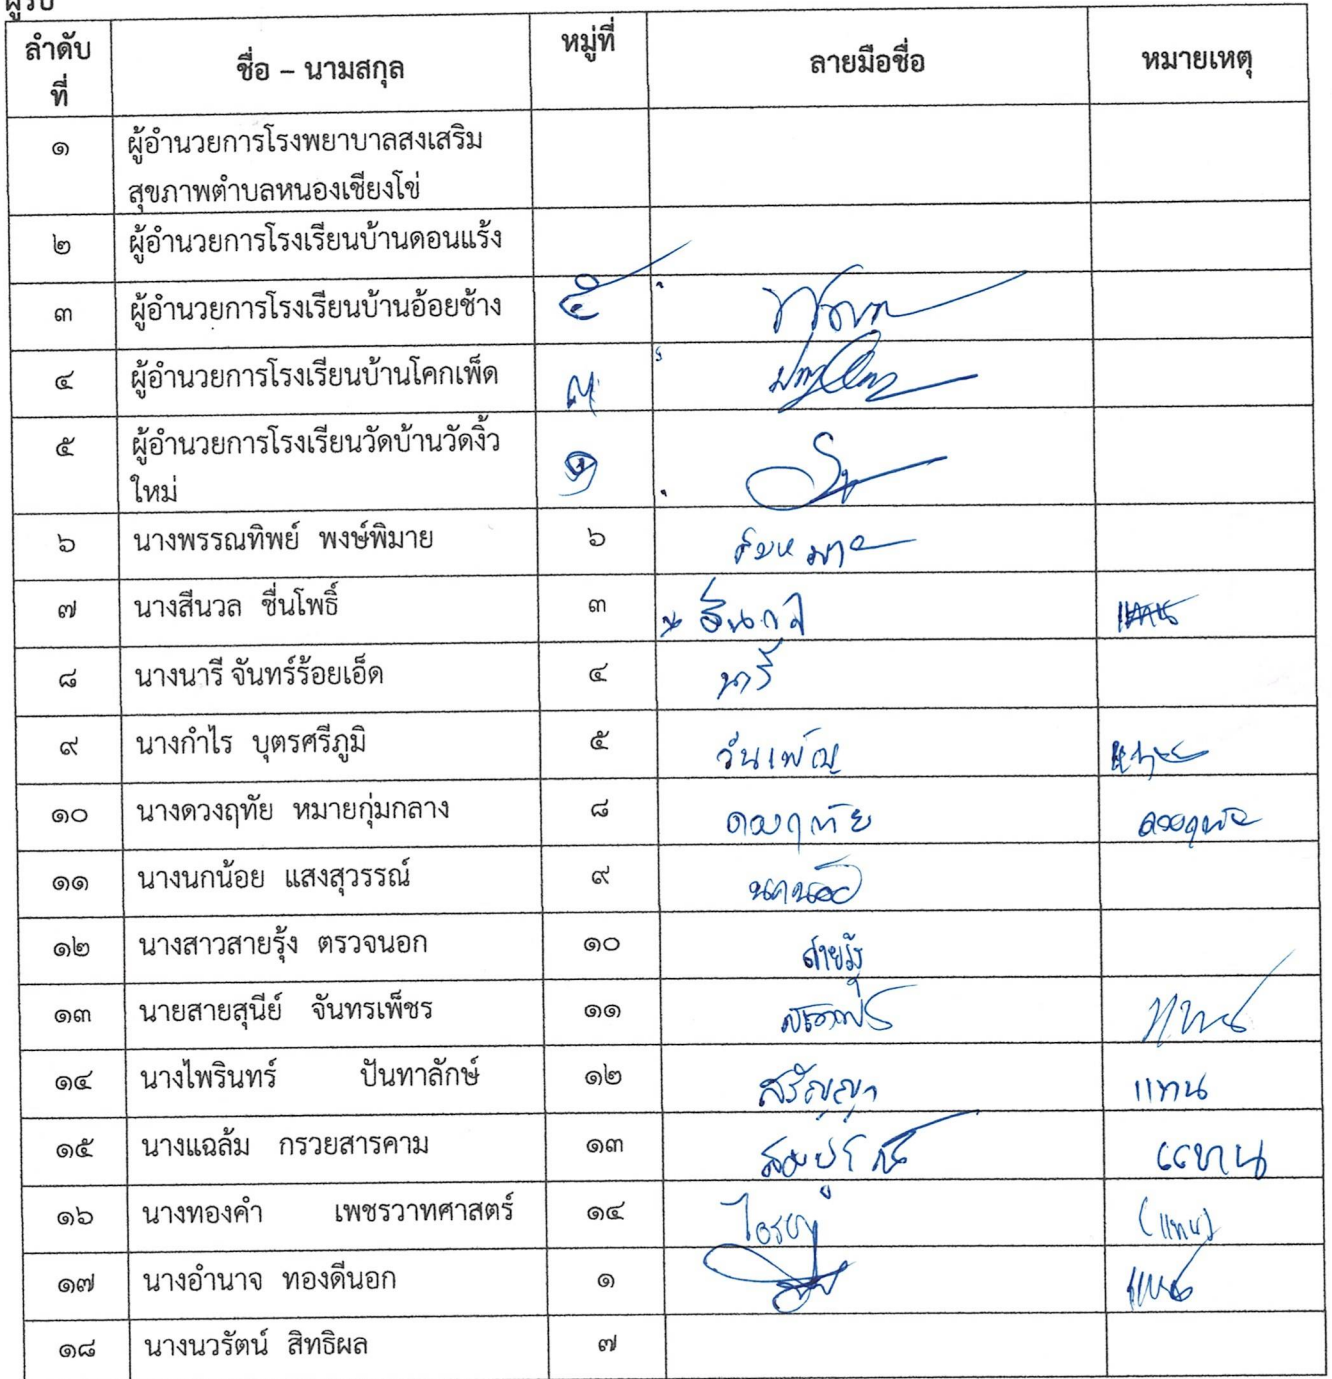 ลำดับ ชื่อ – นามสกุล หมู่ที่ ลายมือชื่อ หมายเหตุ
ที่
๑ ผู้อำนวยการโรงพยาบาลสงเสริม
สุขภาพตำบลหนองเชียงโข่
๒ ผู้อำนวยการโรงเรียนบ้านดอนแร้ง
๓ ผู้อำนวยการโรงเรียนบ้านอ้อยช้าง ๕
๔ ผู้อำนวยการโรงเรียนบ้านโคกเพ็ด
๕ ผู้อำนวยการโรงเรียนวัดบ้านวัดงิ้ว
ใหม่
๖ นางพรรณทิพย์ พงษ์พิมาย ๖
๗ นางสีนวล ชื่นโพธิ์ ๓
๘ นางนารี จันทร์ร้อยเอ็ด ๔ นารี
๙ นางกำไร บุตรศรีภูมิ ๕ วันเพ็ญ
๑๐ นางดวงฤทัย หมายกุ่มกลาง ๘ ดวงฤทัย ดวงฤทัย
๑๑ นางนกน้อย แสงสุวรรณ์ ๙ นกน้อย
๑๒ นางสาวสายรุ้ง ตรวจนอก ๑๐ สายรุ้ง
๑๓ นายสายสุนีย์ จันทรเพ็ชร ๑๑ แทน
๑๔ นางไพรินทร์ ปันทาลักษ์ ๑๒ สรัญญา แทน
๑๕ นางแฉล้ม กรวยสารคาม ๑๓ แทน
๑๖ นางทองคำ เพชรวาทศาสตร์ ๑๔ (แทน)
๑๗ นางอำนาจ ทองดีนอก ๑ แทน
๑๘ นางนวรัตน์ สิทธิผล ๗